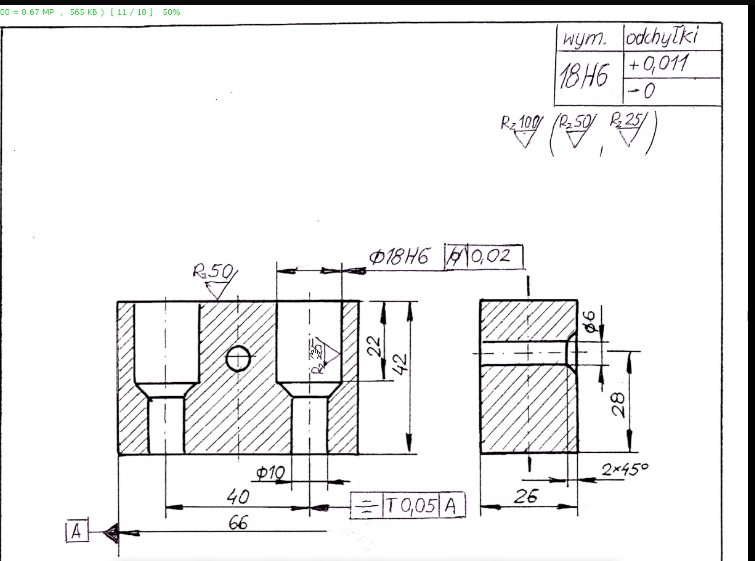 00 = 0.67 MP , 565 KB ) [ 11 / 18 ] 50%
wym. odchyłki
18H6 +0,011
-0
Rz100 (Rz50, Rz25)
ϕ18H6 ⌭ 0,02
Rz50
22
42
ϕ6
28
ϕ10
2×45°
40
⌯ T 0,05 A
26
66
A